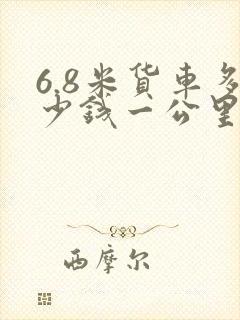 6.8米货車多
少錢一公里
西摩尔